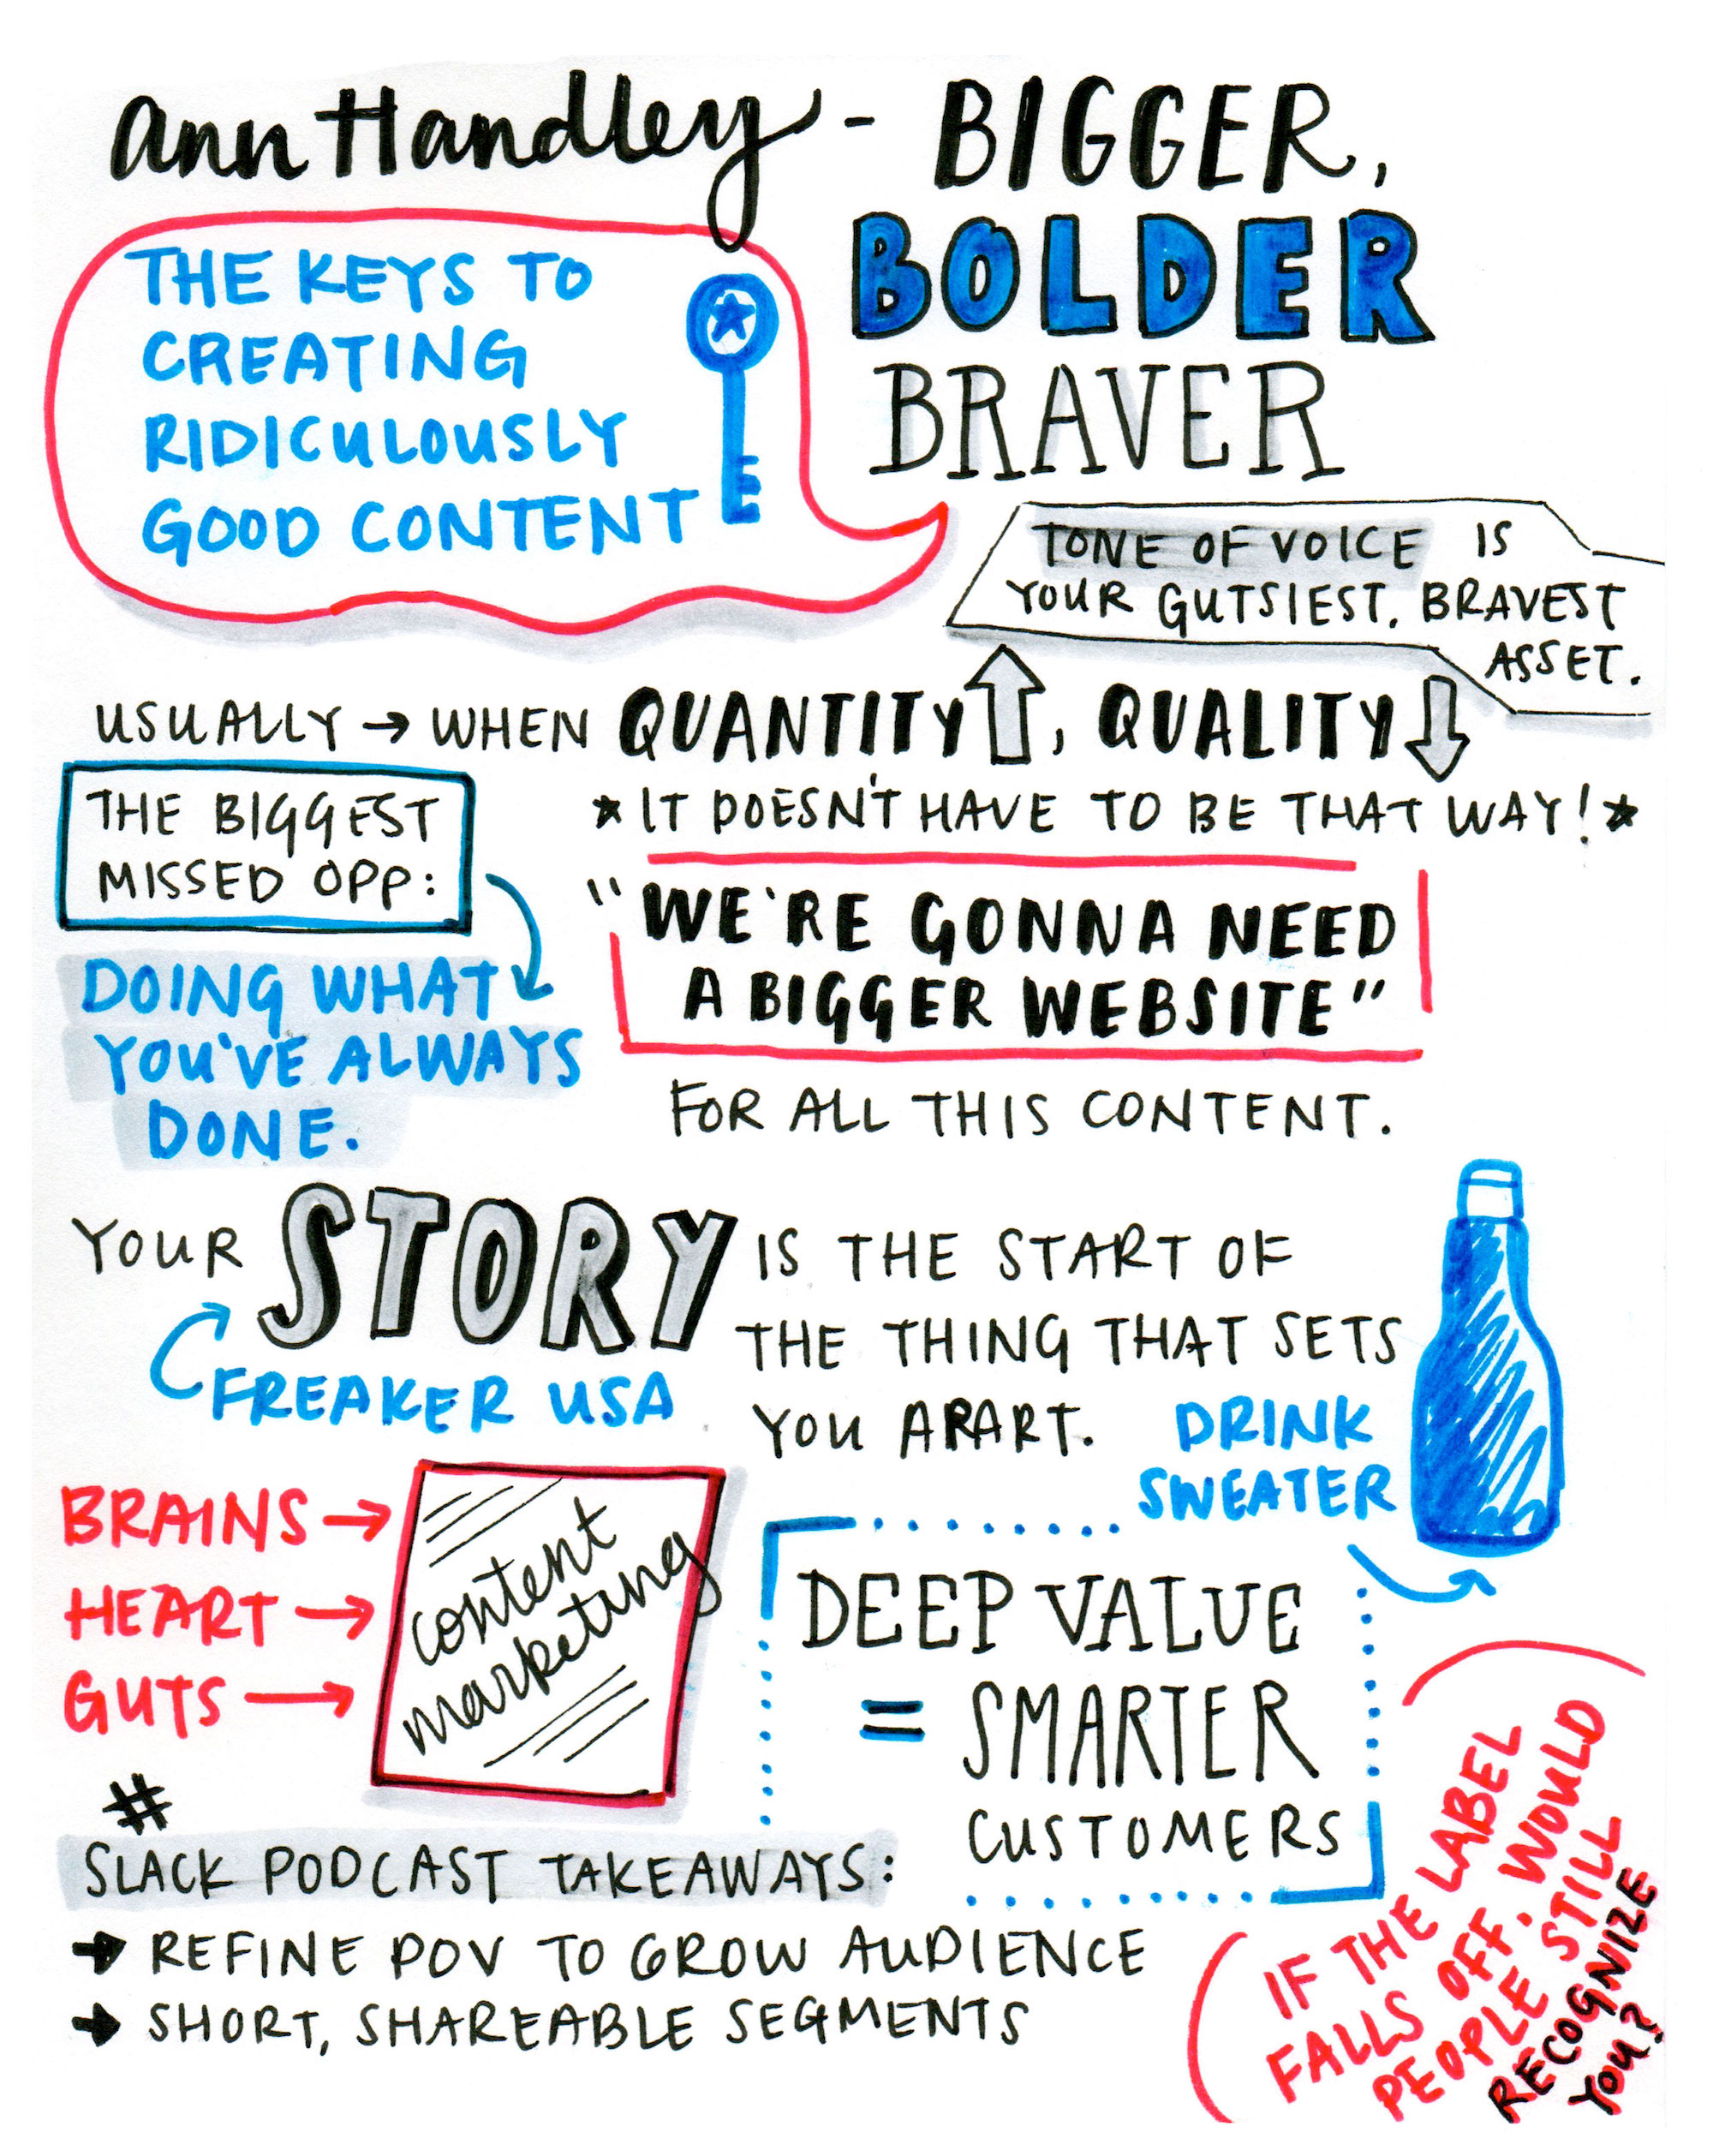 Ann Handley - BIGGER,
BOLDER
BRAVER
THE KEYS TO
CREATING
RIDICULOUSLY
GOOD CONTENT
TONE OF VOICE IS
YOUR GUTSIEST, BRAVEST
ASSET.
USUALLY → WHEN QUANTITY ⇧, QUALITY ⇩
*IT DOESN'T HAVE TO BE THAT WAY!*
THE BIGGEST
MISSED OPP:
DOING WHAT
YOU'VE ALWAYS
DONE.
"WE'RE GONNA NEED
A BIGGER WEBSITE"
FOR ALL THIS CONTENT.
YOUR STORY IS THE START OF
THE THING THAT SETS
YOU APART.
FREAKER USA
DRINK
SWEATER
BRAINS →
HEART →
GUTS →
content
marketing
DEEP VALUE
= SMARTER
CUSTOMERS
IF THE LABEL
FALLS OFF, WOULD
PEOPLE STILL
RECOGNIZE
YOU?
#
SLACK PODCAST TAKEAWAYS:
→ REFINE POV TO GROW AUDIENCE
→ SHORT, SHAREABLE SEGMENTS